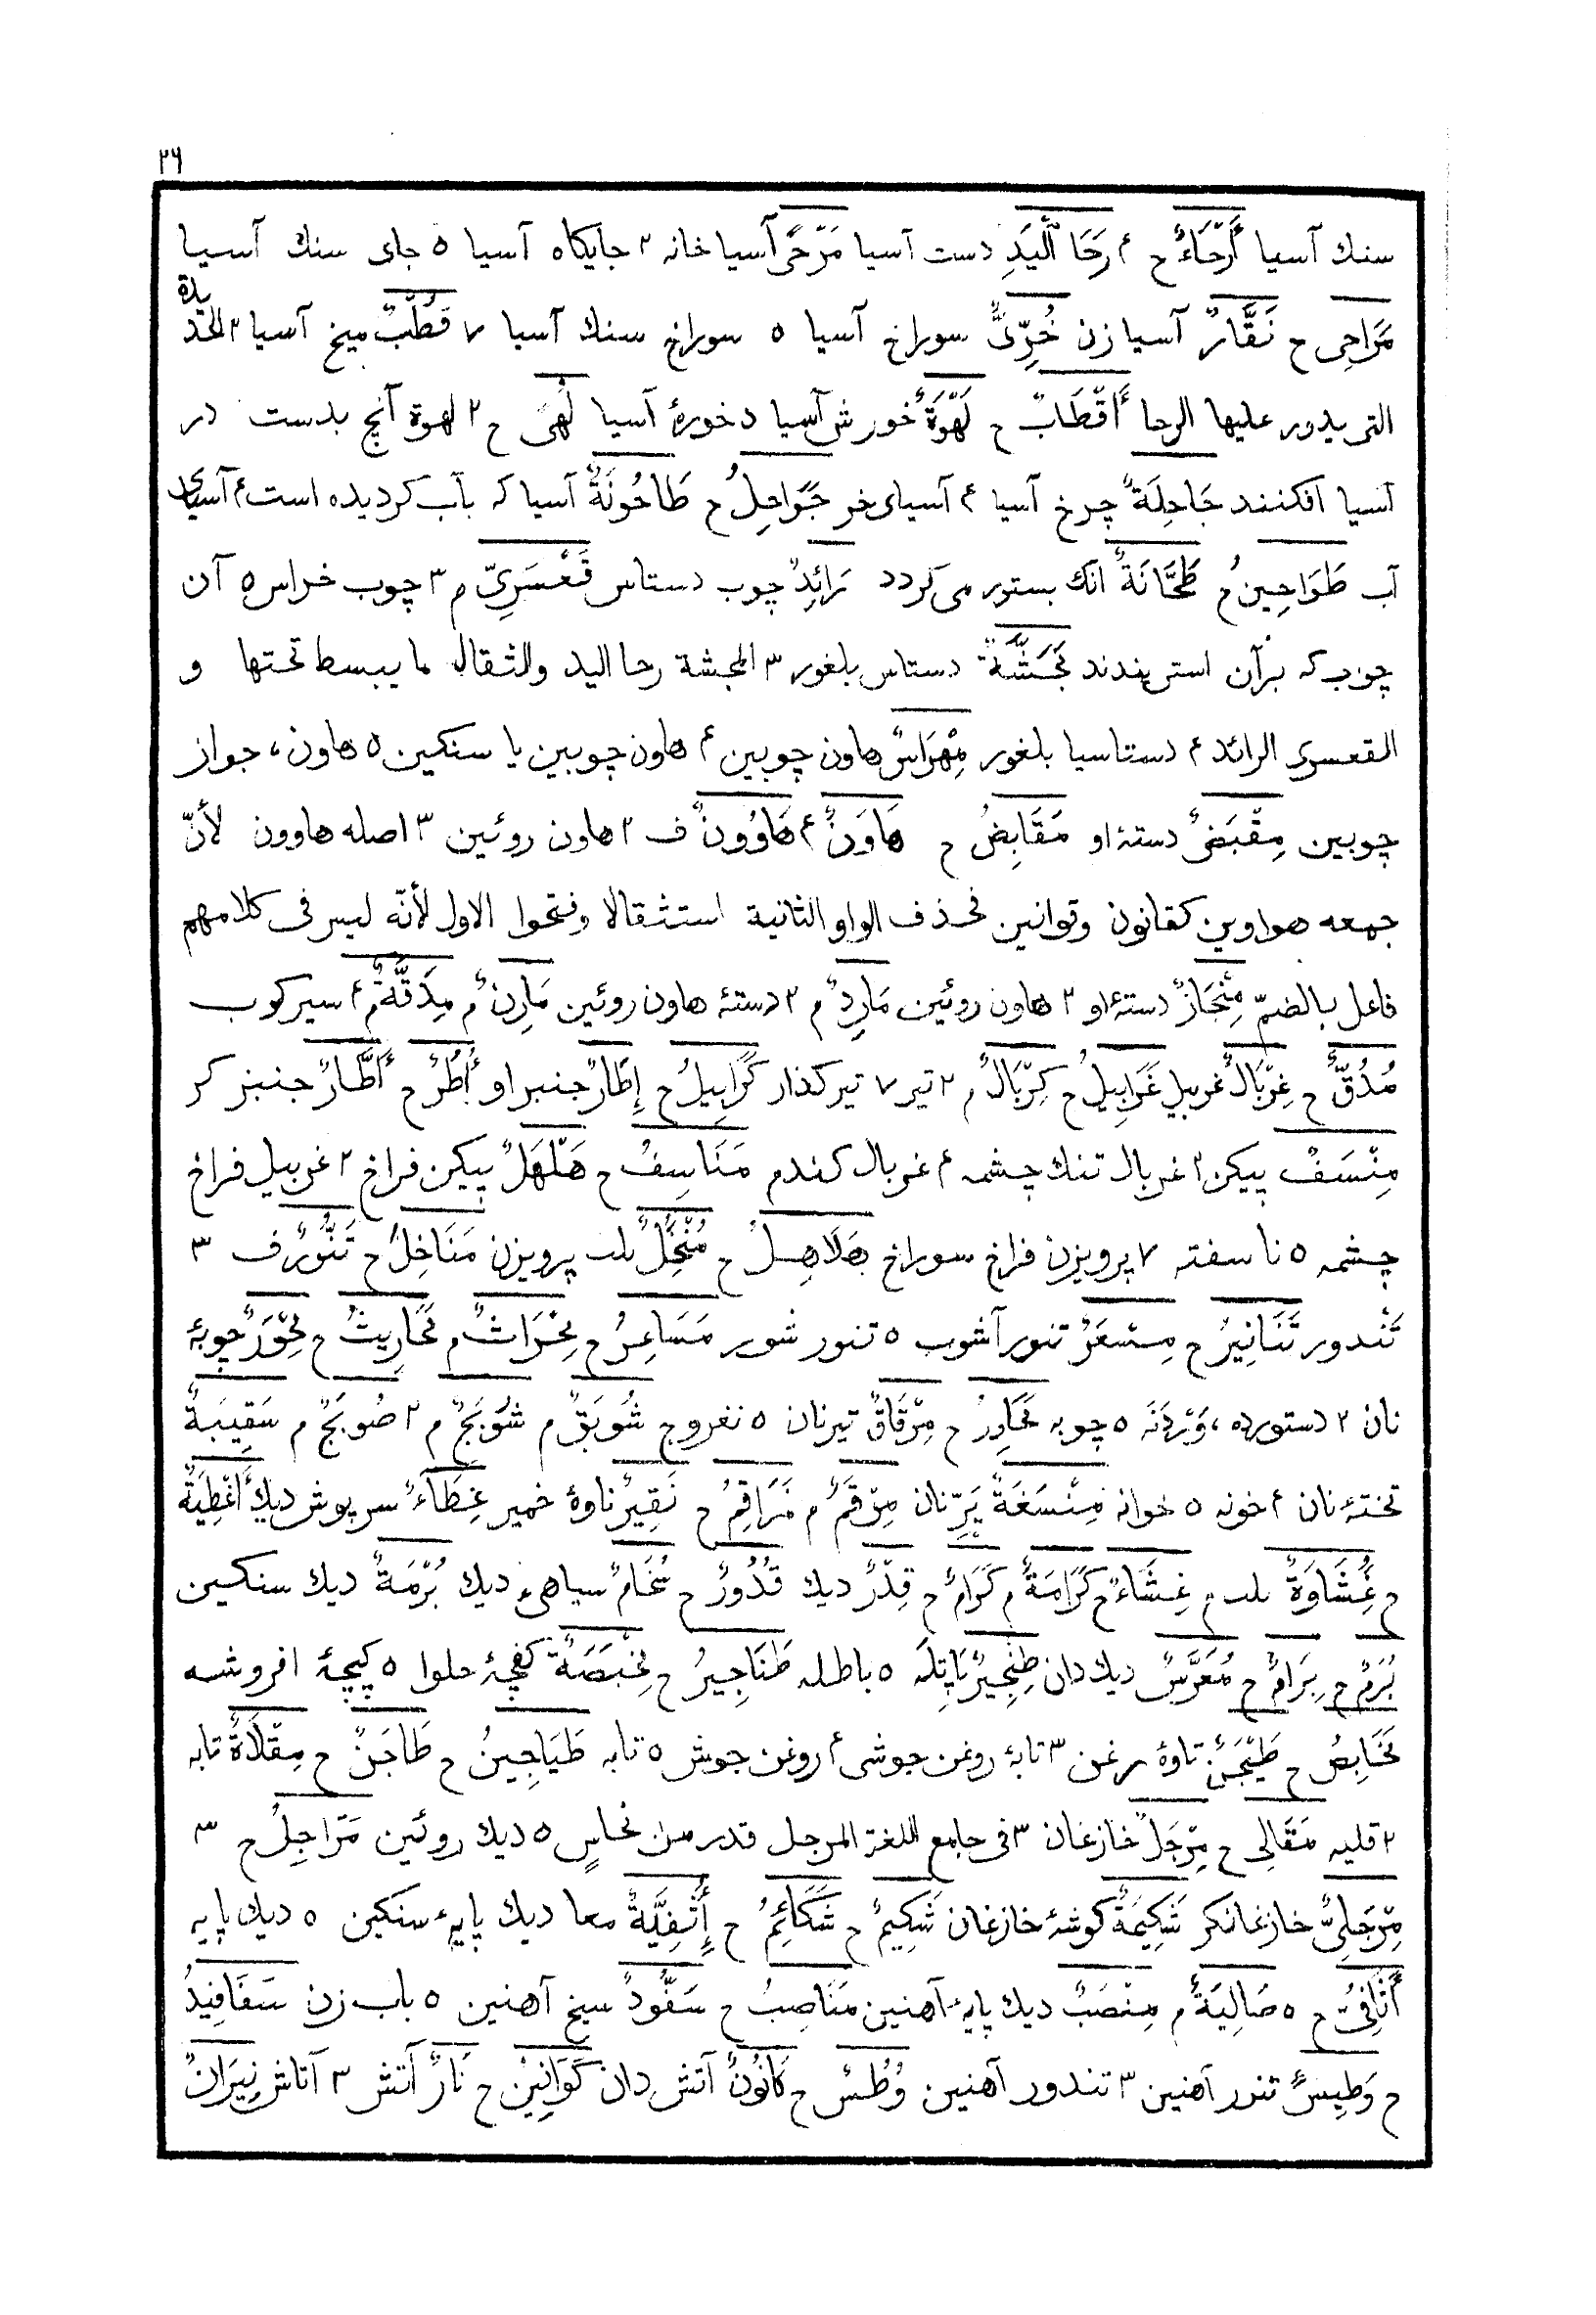 ٢٦
سنك آسیا أَرْحَاءٌ ح ۴ رَحَا الْيَدِ دست آسیا مَرْحًى آسیا خانه ٢ جایکاه آسیا ۵ جای سنك آسیا
مَرَاحِى ح نَقَّارٌ آسیا زن خُرِّىٌّ سوراخ آسیا ۵ سوراخ سنك آسیا ٧ قُطْبٌ میخ آسیا ٣ الحديدة
التى يدور عليها الرحا أَقْطَابٌ ح لَهْوَةٌ خورش آسیا د خورهٔ آسیا لُهًى ح ٢ لهوة آنچ بدست در
آسیا افکنند جَاحِلَةٌ چرخ آسیا ۴ آسیای خر جَوَاحِلُ ح طَاحُونَةٌ آسیا که بآب کردیده است ۴ آسیای
آب طَوَاحِينُ م طَحَّانَةٌ انك بستور می کردد رَائِدٌ چوب دستاس قَعْسَرِىّ م ٣ چوب خراس ۵ آن
چوب که بر آن استر بندند مِجَشَّةٌ دستاس بلغور ٣ المجشة رحا اليد والثقال ما يبسط تحتها و
القعسرى الرائد ۴ دستاسیا بلغور مِهْرَاسٌ هاون چوبین ۴ هاون چوبین یا سنکین ۵ هاون، جواز
چوبین مِقْبَضٌ دستهٔ او مَقَابِضُ ح هَاوَنٌ ۴ هَاوُونٌ ف ٢ هاون روئین ٣ اصله هاوون لأنّ
جمعه هواوين كقانون وقوانين فحذف الواو الثانية استثقالا وفتحوا الاول لأنّه ليس فى كلامهم
فاعل بالضمّ مِنْحَازٌ دستهٔ او ٢ هاون روئین مَارِدٌ م ٢ دستهٔ هاون روئین مَارِنٌ م مِدَقَّةٌ م ۴ سیر کوب
مُدُقٌّ ح غِرْبَالٌ غربیل غَرَابِيلُ ح كِرْبَالٌ م ٢ تیر ٧ تیر کذار كَرَابِيلُ ح إِطَارٌ جنبر او أُطُرٌ ح أَطَّارٌ جنبر کر
مِنْسَفٌ پیکن ٢ غربال تنك چشمه ۴ غربال کندم مَنَاسِفُ ح هَلْهَلٌ پیکن فراخ ٢ غربیل فراخ
چشمه ۵ نا سفته ٧ پرویزن فراخ سوراخ هَلَاهِلُ ح مُنْخُلٌ پرویزن مَنَاخِلُ ح تَنُّورٌ ف ٣
تَندور تَنَانِيرُ ح مِسْعَرٌ تنور آشوب ۵ تنور شور مَسَاعِرُ ح مِحْرَاثٌ م مَحَارِيثُ ح مِحْوَرٌ چوبهٔ
نان ٢ دستورده، وَرْدَنَه ۵ چوبه مَحَاوِرُ ح مِرْقَاقٌ تیر نان ۵ نغروج شُوبَقٌ م شُوبَجٌ م ٢ صُوبَجٌ م سَقِيبَةٌ
تختهٔ نان ۴ خونه ۵ خوانه مِنْسَغَةٌ پَرِّ نان مِرْقَمٌ م مَرَاقِمُ ح نَقِيرٌ ناوهٔ خمیر غِطَاءٌ سرپوش دیك أَغْطِيَةٌ
ح غِشَاوَةٌ م غِشَاءٌ م كَرَامَةٌ م كَرَامٌ ح قِدْرٌ دیك قُدُورٌ ح سُخَامٌ سیاهی دیك بُرْمَةٌ دیك سنکین
بُرَمٌ ح بِرَامٌ ح مُعَرَّسٌ دیك دان طِنْجِيرٌ پَاتِلَه ۵ باطله طَنَاجِيرُ ح مِخْبَصَةٌ کفچهٔ حلوا ۵ کپچهٔ افروشه
مَخَابِصُ ح طَيْجَنٌ تاوهٔ رغن ٣ تابهٔ روغن جوشی ۴ روغن جوش ۵ تابه طَيَاجِينُ ح طَاجَنٌ ح مِقْلَاةٌ تابه
٢ قلیه مَقَالِى ح مِرْجَلٌ خازغان ٣ فى جامع اللغة المرجل قدر من نحاسٍ ۵ دیك روئین مَرَاجِلُ ح ٣
مِرْجَلِىٌّ خازغانکر شَكِيمَةٌ کوشهٔ خازغان شَكِيمٌ ح شَكَائِمُ ح أُثْفِيَّةٌ معا دیك پایهٔ سنکین ۵ دیك پایه
أَثَافِىُّ ح ۵ صَالِيَةٌ م مِنْصَبٌ دیك پایهٔ آهنین مَنَاصِبُ ح سَفُّودٌ سیخ آهنین ۵ باب زن سَفَافِيدُ
ح وَطِيسٌ تنور آهنین ٣ تندور آهنین وُطُسٌ ح كَانُونٌ آتش دان كَوَانِينُ ح نَارٌ آتش ٣ آتاش نِيرَانٌ